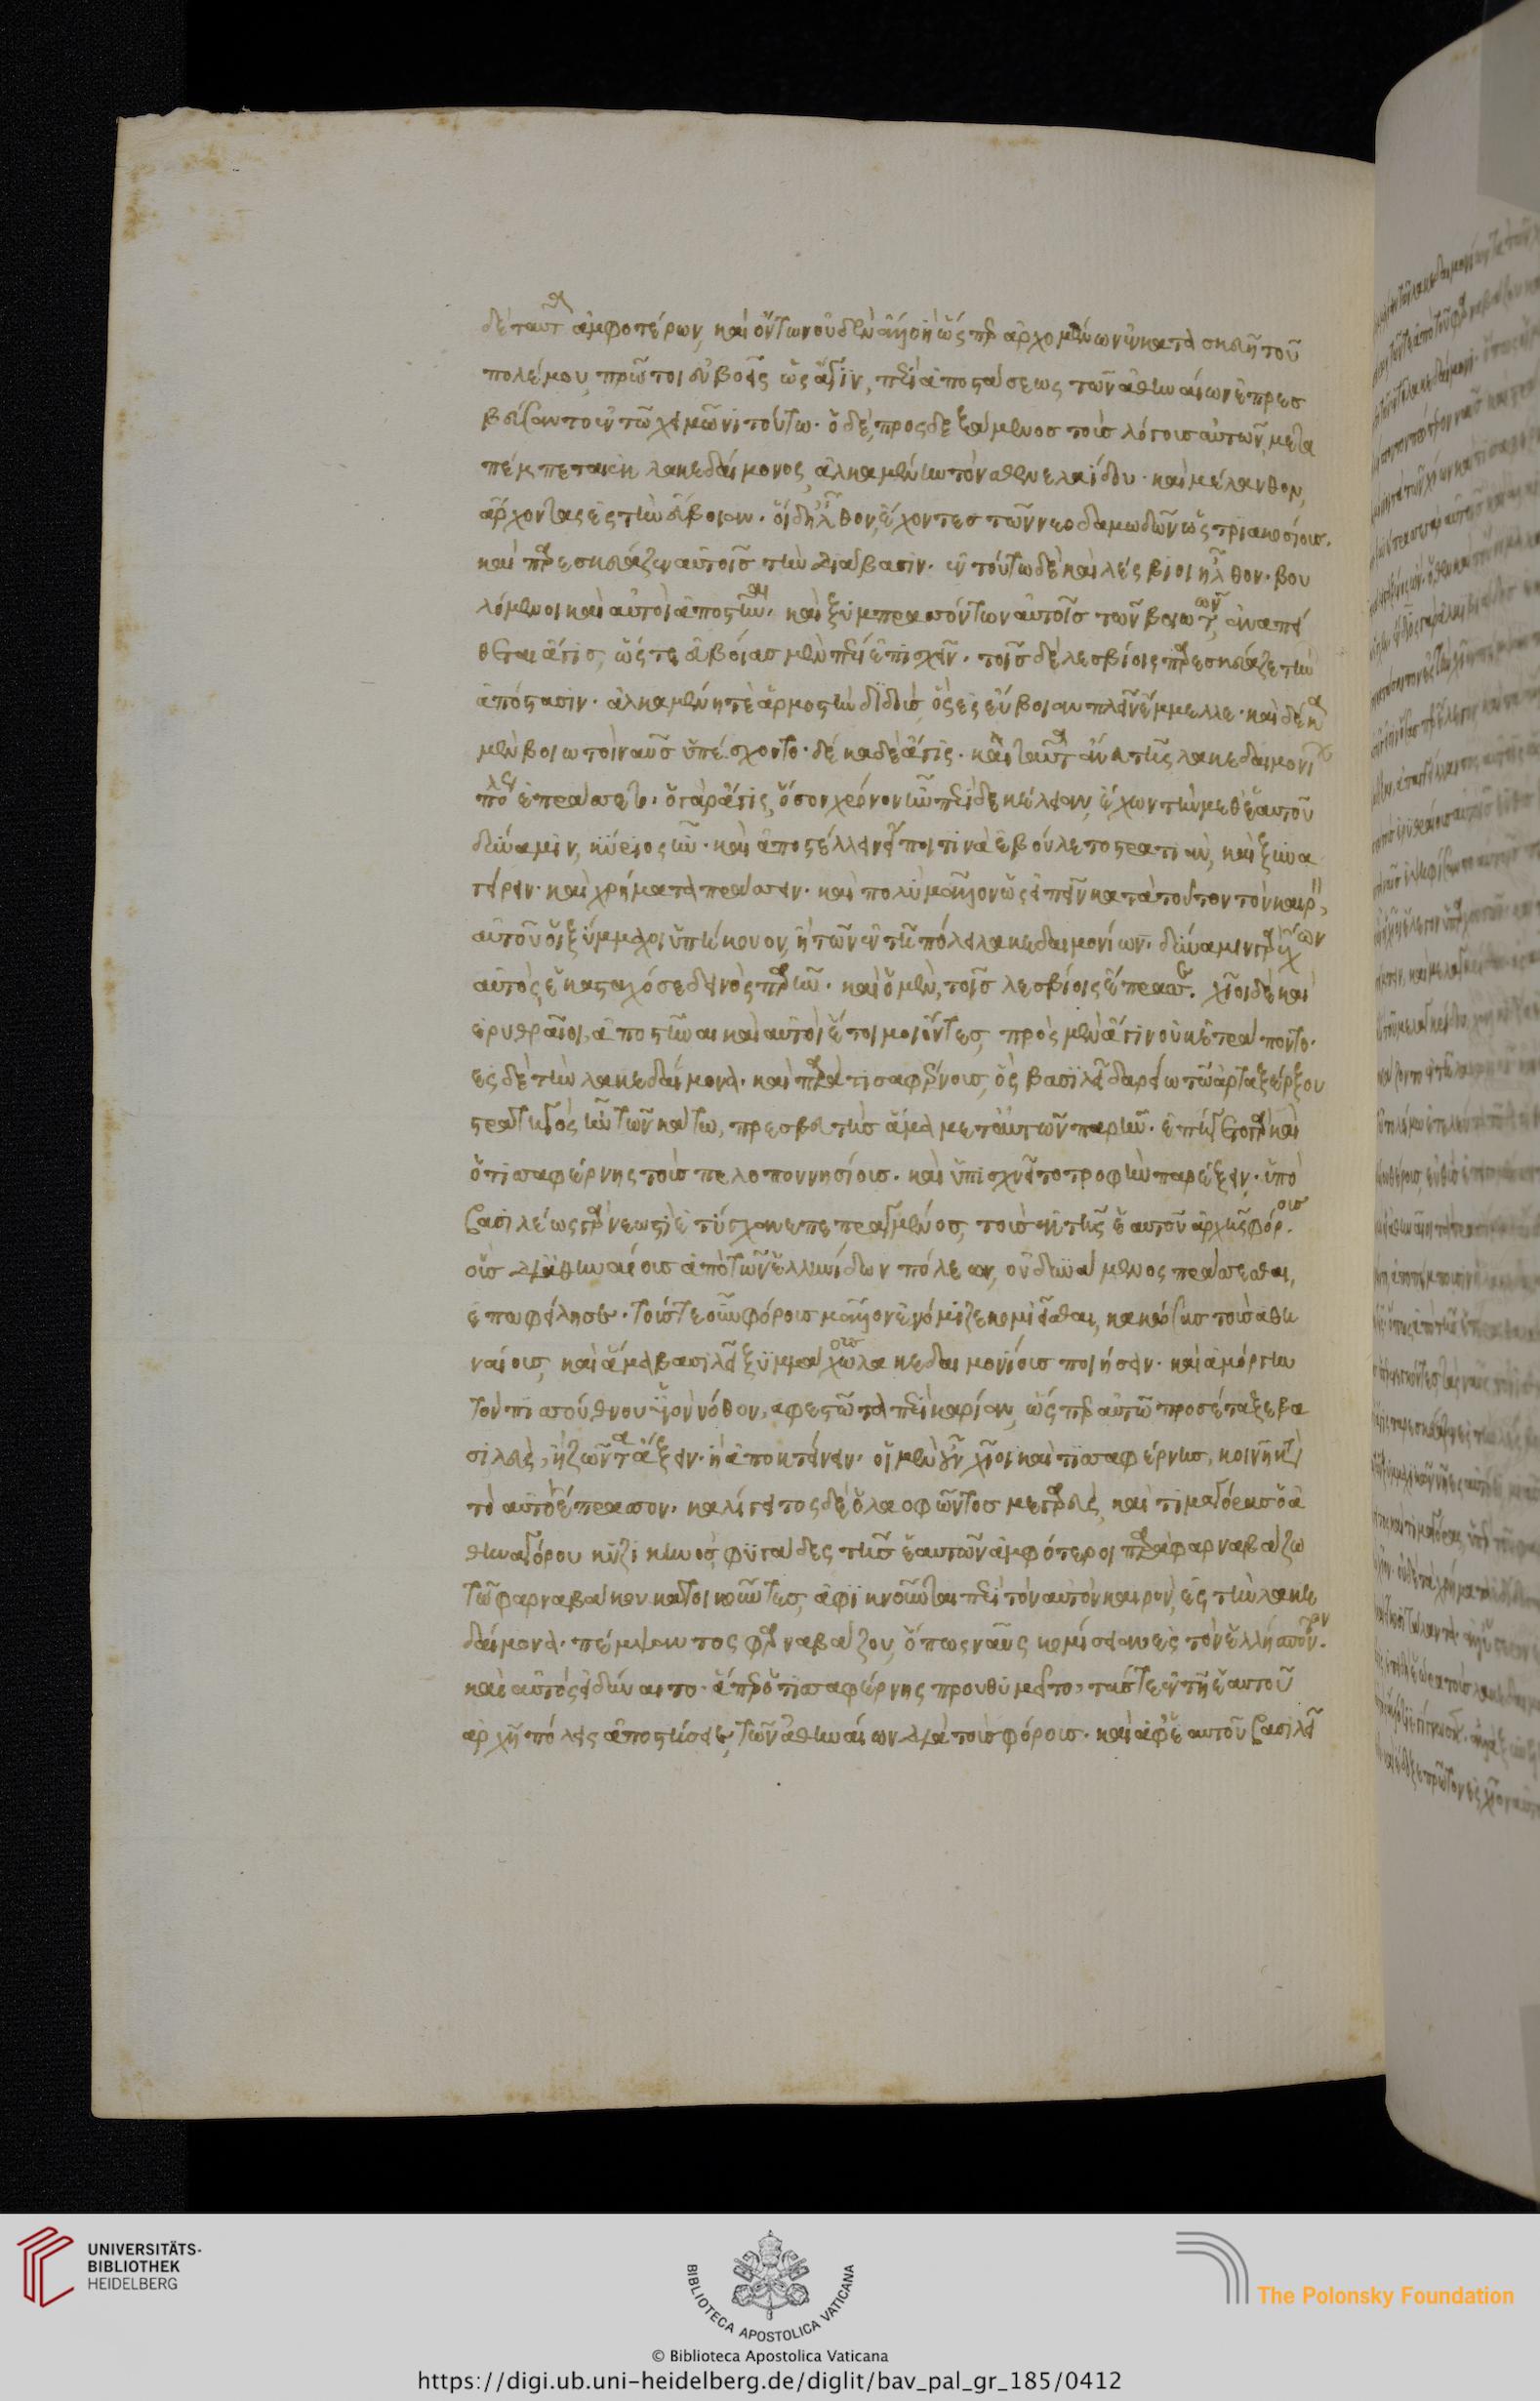 δὲ ταῦτα ἀμφοτέρων, καὶ ὄντων οὐδὲν ἄλλο ἢ ὥσπερ ἀρχομένων ἐν κατασκευῇ τοῦ
πολέμου, πρῶτοι εὐβοεῖς ὡς ἄγιν, περὶ ἀποστάσεως τῶν ἀθηναίων ἐπρεσ
βεύσαντο ἐν τῷ χειμῶνι τούτω. ὁ δὲ, προσδεξάμενος τοὺς λόγους αὐτῶν, μετα
πέμπεται ἐκ λακεδαίμονος, ἀλκαμένην τὸν σθενελαΐδου. καὶ μέλανθον,
ἄρχοντας ἐς τὴν εὔβοιαν. οἱ δ' ἦλθον, ἔχοντες τῶν νεοδαμωδῶν ὡς τριακοσίους.
καὶ παρεσκεύαζεν αὐτοῖς τὴν διάβασιν. ἐν τούτω δὲ καὶ λέσβιοι ἦλθον. βου
λόμενοι καὶ αὐτοὶ ἀποστῆναι. καὶ ξυμπρασσόντων αὐτοῖς τῶν βοιωτῶν, ἀναπεί
θεται ἄγις, ὥστε εὐβοίας μὲν πέρι ἐπισχεῖν. τοῖς δὲ λεσβίοις παρεσκεύαζε τὴν
ἀπόστασιν. ἀλκαμένη τε ἁρμοστὴν διδοὺς, ὃς ἐς εὔβοιαν πλεῖν ἔμμελλε. καὶ δέκα
μὲν βοιωτοὶ ναῦς ὑπέσχοντο. δέκα δὲ ἄγις. καὶ ταῦτα ἄνευ τῆς λακεδαιμονίων
πόλεως ἐπράσσετο. ὁ γὰρ ἄγις, ὅσον χρόνον ἦν περὶ δεκέλειαν, ἔχων τὴν μεθ' ἑαυτοῦ
δύναμιν, κύριος ἦν. καὶ ἀποστέλλειν εἴ ποι τινὰ ἐβούλετο στρατιὰν, καὶ ξυνα
γείρειν. καὶ χρήματα πράσσειν. καὶ πολὺ μᾶλλον ὡς εἰπεῖν κατὰ τοῦτον τὸν καιρὸν,
αὐτοῦ οἱ ξύμμαχοι ὑπήκουον, ἢ τῶν ἐν τῇ πόλει λακεδαιμονίων. δύναμιν γὰρ ἔχων
αὐτὸς ἑκασταχόσε δεινὸς παρῆν. καὶ ὁ μὲν, τοῖς λεσβίοις ἔπρασσε. χῖοι δὲ καὶ
ἐρυθραῖοι, ἀποστῆναι καὶ αὐτοὶ ἕτοιμοι ὄντες, πρὸς μὲν ἄγιν οὐκ ἐτράποντο.
ἐς δὲ τὴν λακεδαίμονα. καὶ παρὰ τισσαφέρνους, ὃς βασιλεῖ δαρείω τῷ ἀρταξέρξου
στρατηγὸς ἦν τῶν κάτω, πρεσβευτὴς ἅμα μετ' αὐτῶν παρῆν. ἐπήγετο γὰρ καὶ
ὁ τισσαφέρνης τοὺς πελοποννησίους. καὶ ὑπισχνεῖτο τροφὴν παρέξειν. ὑπὸ
βασιλέως γὰρ νεωστὶ ἐτύγχανε πεπραγμένος, τοὺς ἐκ τῆς ἑαυτοῦ ἀρχῆς φόρους.
οὓς δι' ἀθηναίους ἀπὸ τῶν ἑλληνίδων πόλεων, οὐ δυνάμενος πράσσεσθαι,
ἐπωφείλησε. τούς τε οὖν φόρους μᾶλλον ἐνόμιζε κομιεῖσθαι, κακώσας τοὺς ἀθη
ναίους, καὶ ἅμα βασιλεῖ ξυμμάχους λακεδαιμονίους ποιήσειν. καὶ ἀμόργην
τὸν πισσούθνου υἱὸν νόθον, ἀφεστῶτα περὶ καρίαν, ὥσπερ αὐτῷ προσέταξε βα
σιλεὺς, ἢ ζῶντα ἄξειν. ἢ ἀποκτείνειν. οἱ μὲν οὖν χῖοι καὶ τισσαφέρνης, κοινῇ κατὰ
τὸ αὐτὸ ἔπρασσον. καλίγειτος δὲ ὁ λαοφῶντος μεγαρεὺς, καὶ τιμαγόρας ὁ ἀ
θηναγόρου κυζικηνὸς, φυγάδες τῆς ἑαυτῶν ἀμφότεροι παρὰ φαρναβάζω
τῷ φαρναβάκου κατοικοῦντες, ἀφικνοῦνται περὶ τὸν αὐτὸν καιρὸν, ἐς τὴν λακε
δαίμονα. πέμψαντος φαρναβάζου, ὅπως ναῦς κομίσειαν ἐς τὸν ἑλλήσποντον.
καὶ αὐτὸς εἰ δύναιτο. ἅπερ ὁ τισσαφέρνης προυθυμεῖτο, τάς τε ἐν τῇ ἑαυτοῦ
ἀρχῇ πόλεις ἀποστήσειε, τῶν ἀθηναίων διὰ τοὺς φόρους. καὶ ἀφ' ἑαυτοῦ βασιλεῖ
UNIVERSITÄTS-
BIBLIOTHEK
HEIDELBERG
BIBLIOTECA APOSTOLICA VATICANA
The Polonsky Foundation
© Biblioteca Apostolica Vaticana
https://digi.ub.uni-heidelberg.de/diglit/bav_pal_gr_185/0412